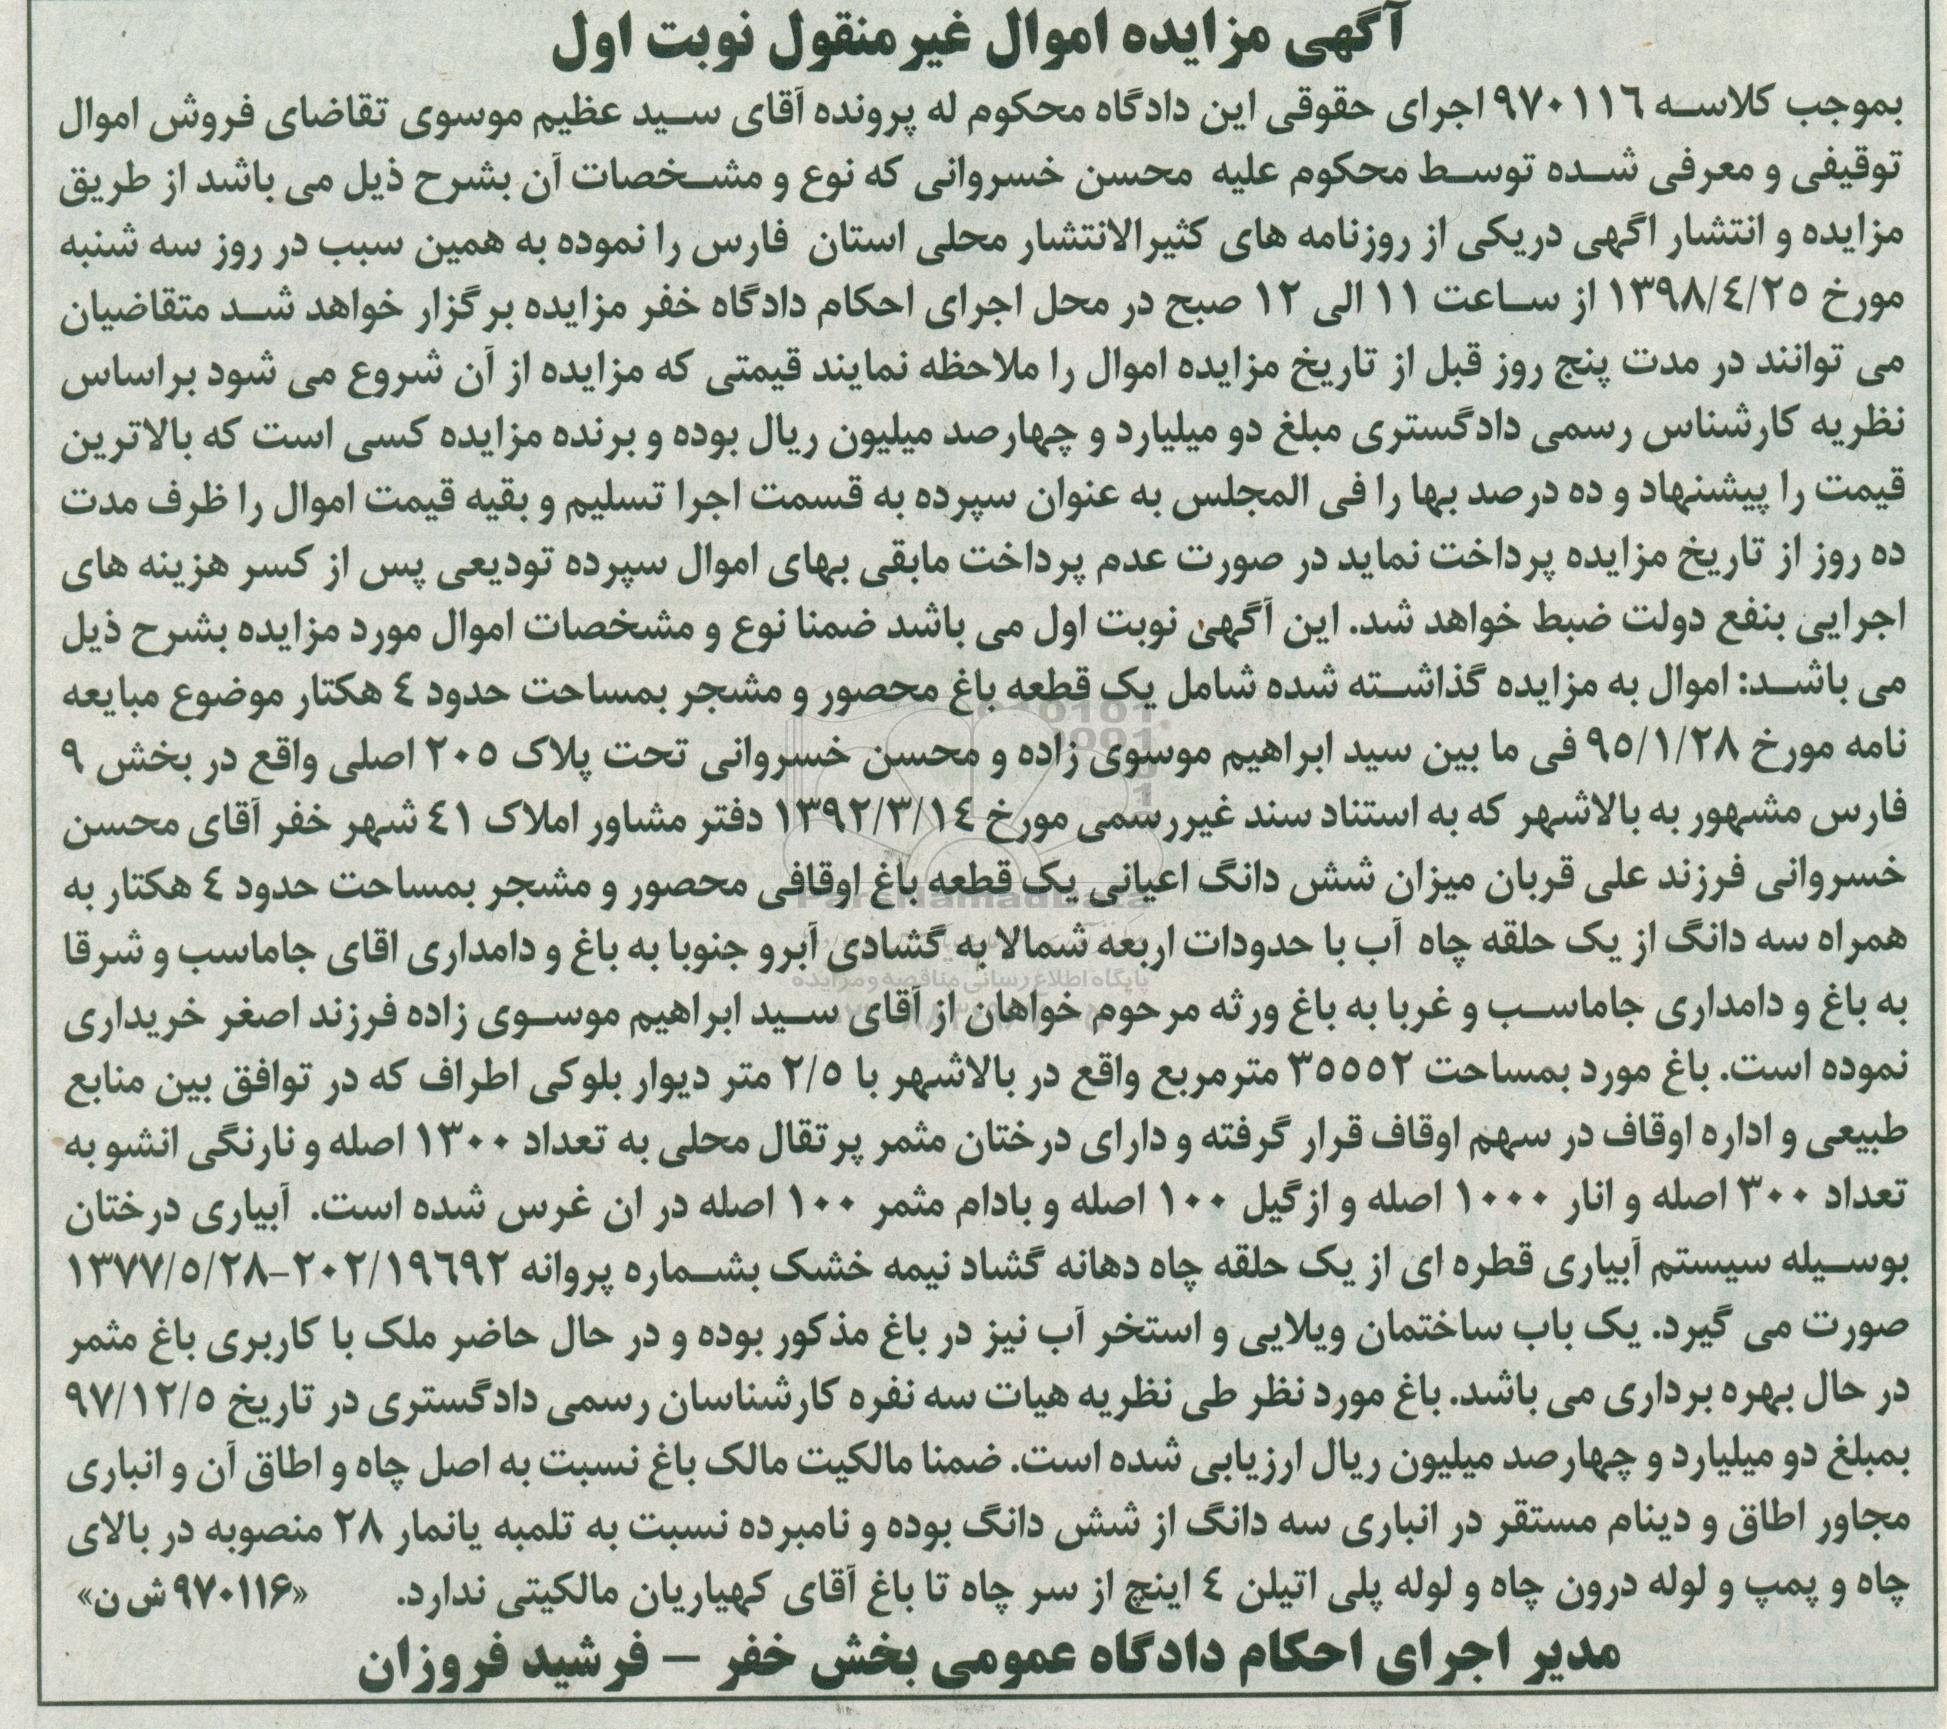 آگهی مزایده اموال غیر منقول نوبت اول
بموجب کلاسه ۹۷۰۱۱٦ اجرای حقوقی این دادگاه محکوم له پرونده آقای سید عظیم موسوی تقاضای فروش اموال
توقیفی و معرفی شده توسط محکوم علیه محسن خسروانی که نوع و مشخصات آن بشرح ذیل می باشد از طریق
مزایده و انتشار اگهی دریکی از روزنامه های کثیرالانتشار محلی استان فارس را نموده به همین سبب در روز سه شنبه
مورخ ۱۳۹۸/٤/۲٥ از ساعت ۱۱ الی ۱۲ صبح در محل اجرای احکام دادگاه خفر مزایده برگزار خواهد شد متقاضیان
می توانند در مدت پنج روز قبل از تاریخ مزایده اموال را ملاحظه نمایند قیمتی که مزایده از آن شروع می شود براساس
نظریه کارشناس رسمی دادگستری مبلغ دو میلیارد و چهارصد میلیون ریال بوده و برنده مزایده کسی است که بالاترین
قیمت را پیشنهاد و ده درصد بها را فی المجلس به عنوان سپرده به قسمت اجرا تسلیم و بقیه قیمت اموال را ظرف مدت
ده روز از تاریخ مزایده پرداخت نماید در صورت عدم پرداخت مابقی بهای اموال سپرده تودیعی پس از کسر هزینه های
اجرایی بنفع دولت ضبط خواهد شد. این آگهی نوبت اول می باشد ضمنا نوع و مشخصات اموال مورد مزایده بشرح ذیل
می باشد: اموال به مزایده گذاشته شده شامل یک قطعه باغ محصور و مشجر بمساحت حدود ٤ هکتار موضوع مبایعه
نامه مورخ ۹٥/۱/۲۸ فی ما بین سید ابراهیم موسوی زاده و محسن خسروانی تحت پلاک ۲۰٥ اصلی واقع در بخش ۹
فارس مشهور به بالاشهر که به استناد سند غیررسمی مورخ ۱۳۹۲/۳/۱٤ دفتر مشاور املاک ٤۱ شهر خفر آقای محسن
خسروانی فرزند علی قربان میزان شش دانگ اعیانی یک قطعه باغ اوقافی محصور و مشجر بمساحت حدود ٤ هکتار به
همراه سه دانگ از یک حلقه چاه آب با حدودات اربعه شمالا به گشادی آبرو جنوبا به باغ و دامداری اقای جاماسب و شرقا
پایگاه اطلاع رسانی مناقصه و مزایده
به باغ و دامداری جاماسب و غربا به باغ ورثه مرحوم خواهان از آقای سید ابراهیم موسوی زاده فرزند اصغر خریداری
نموده است. باغ مورد بمساحت ۳٥٥٥۲ مترمربع واقع در بالاشهر با ۲/٥ متر دیوار بلوکی اطراف که در توافق بین منابع
طبیعی و اداره اوقاف در سهم اوقاف قرار گرفته و دارای درختان مثمر پرتقال محلی به تعداد ۱۳۰۰ اصله و نارنگی انشو به
تعداد ۳۰۰ اصله و انار ۱۰۰۰ اصله و ازگیل ۱۰۰ اصله و بادام مثمر ۱۰۰ اصله در ان غرس شده است. آبیاری درختان
بوسیله سیستم آبیاری قطره ای از یک حلقه چاه دهانه گشاد نیمه خشک بشماره پروانه ۲۰۲/۱۹٦۹۲-۱۳۷۷/٥/۲۸
صورت می گیرد. یک باب ساختمان ویلایی و استخر آب نیز در باغ مذکور بوده و در حال حاضر ملک با کاربری باغ مثمر
در حال بهره برداری می باشد. باغ مورد نظر طی نظریه هیات سه نفره کارشناسان رسمی دادگستری در تاریخ ۹۷/۱۲/٥
بمبلغ دو میلیارد و چهارصد میلیون ریال ارزیابی شده است. ضمنا مالکیت مالک باغ نسبت به اصل چاه و اطاق آن و انباری
مجاور اطاق و دینام مستقر در انباری سه دانگ از شش دانگ بوده و نامبرده نسبت به تلمبه یانمار ۲۸ منصوبه در بالای
چاه و پمپ و لوله درون چاه و لوله پلی اتیلن ٤ اینچ از سر چاه تا باغ آقای کهیاریان مالکیتی ندارد. «۹۷۰۱۱۶ ش ن»
مدیر اجرای احکام دادگاه عمومی بخش خفر – فرشید فروزان